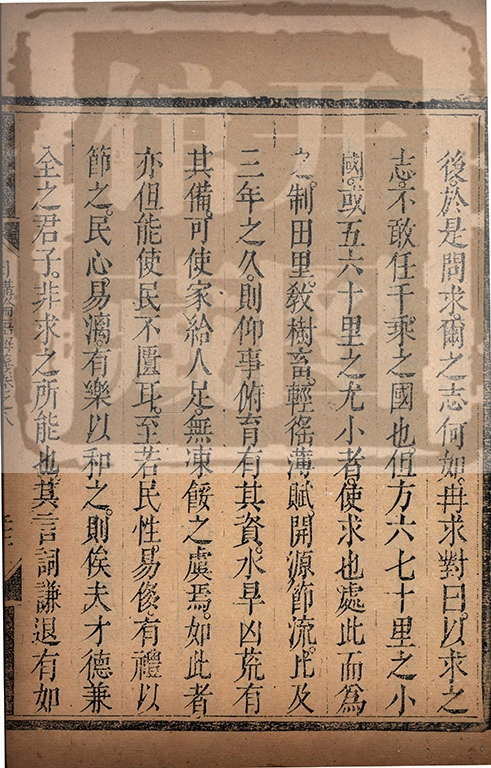 後。於是問求。爾之志何如。冉求對曰。以求之
志。不敢任千乘之國也。但方六七十里之小
國。或五六十里之尤小者。使求也處此而爲
之。制田里。敎樹畜。輕徭薄賦。開源節流。比及
三年之久。則仰事俯育有其資。水旱凶荒有
其備。可使家給人足。無凍餒之虞焉。如此者
亦但能使民不匱耳。至若民性易俊。有禮以
節之。民心易漓。有樂以和之。則俟夫才德兼
全之君子。非求之所能也。其言詞謙退有如